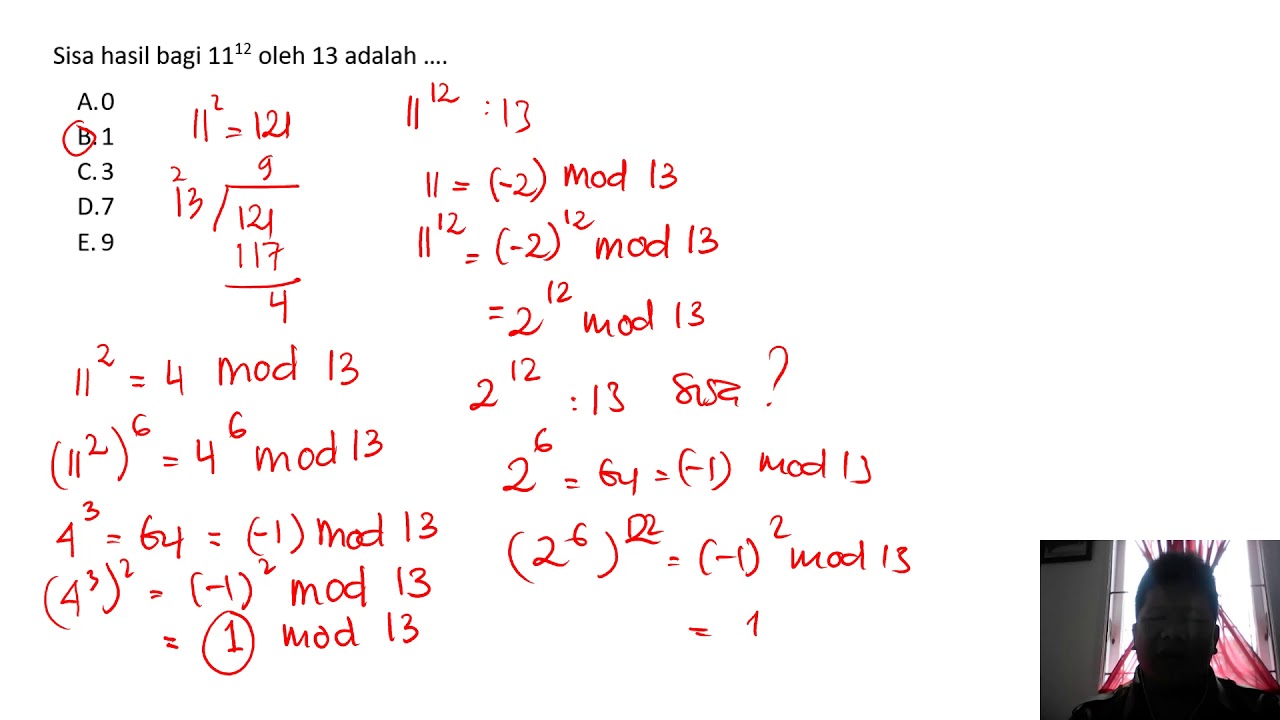 Sisa hasil bagi 11¹² oleh 13 adalah ....
A. 0
B. 1
C. 3
D. 7
E. 9
11² = 121
9
2
13 / 121
117
4
11² = 4 mod 13
(11²)⁶ = 4⁶ mod 13
4³ = 64 = (-1) mod 13
(4³)² = (-1)² mod 13
= 1 mod 13
11¹² : 13
11 = (-2) mod 13
11¹² = (-2)¹² mod 13
= 2¹² mod 13
2¹² : 13 sisa ?
2⁶ = 64 = (-1) mod 13
(2⁶)² = (-1)² mod 13
= 1